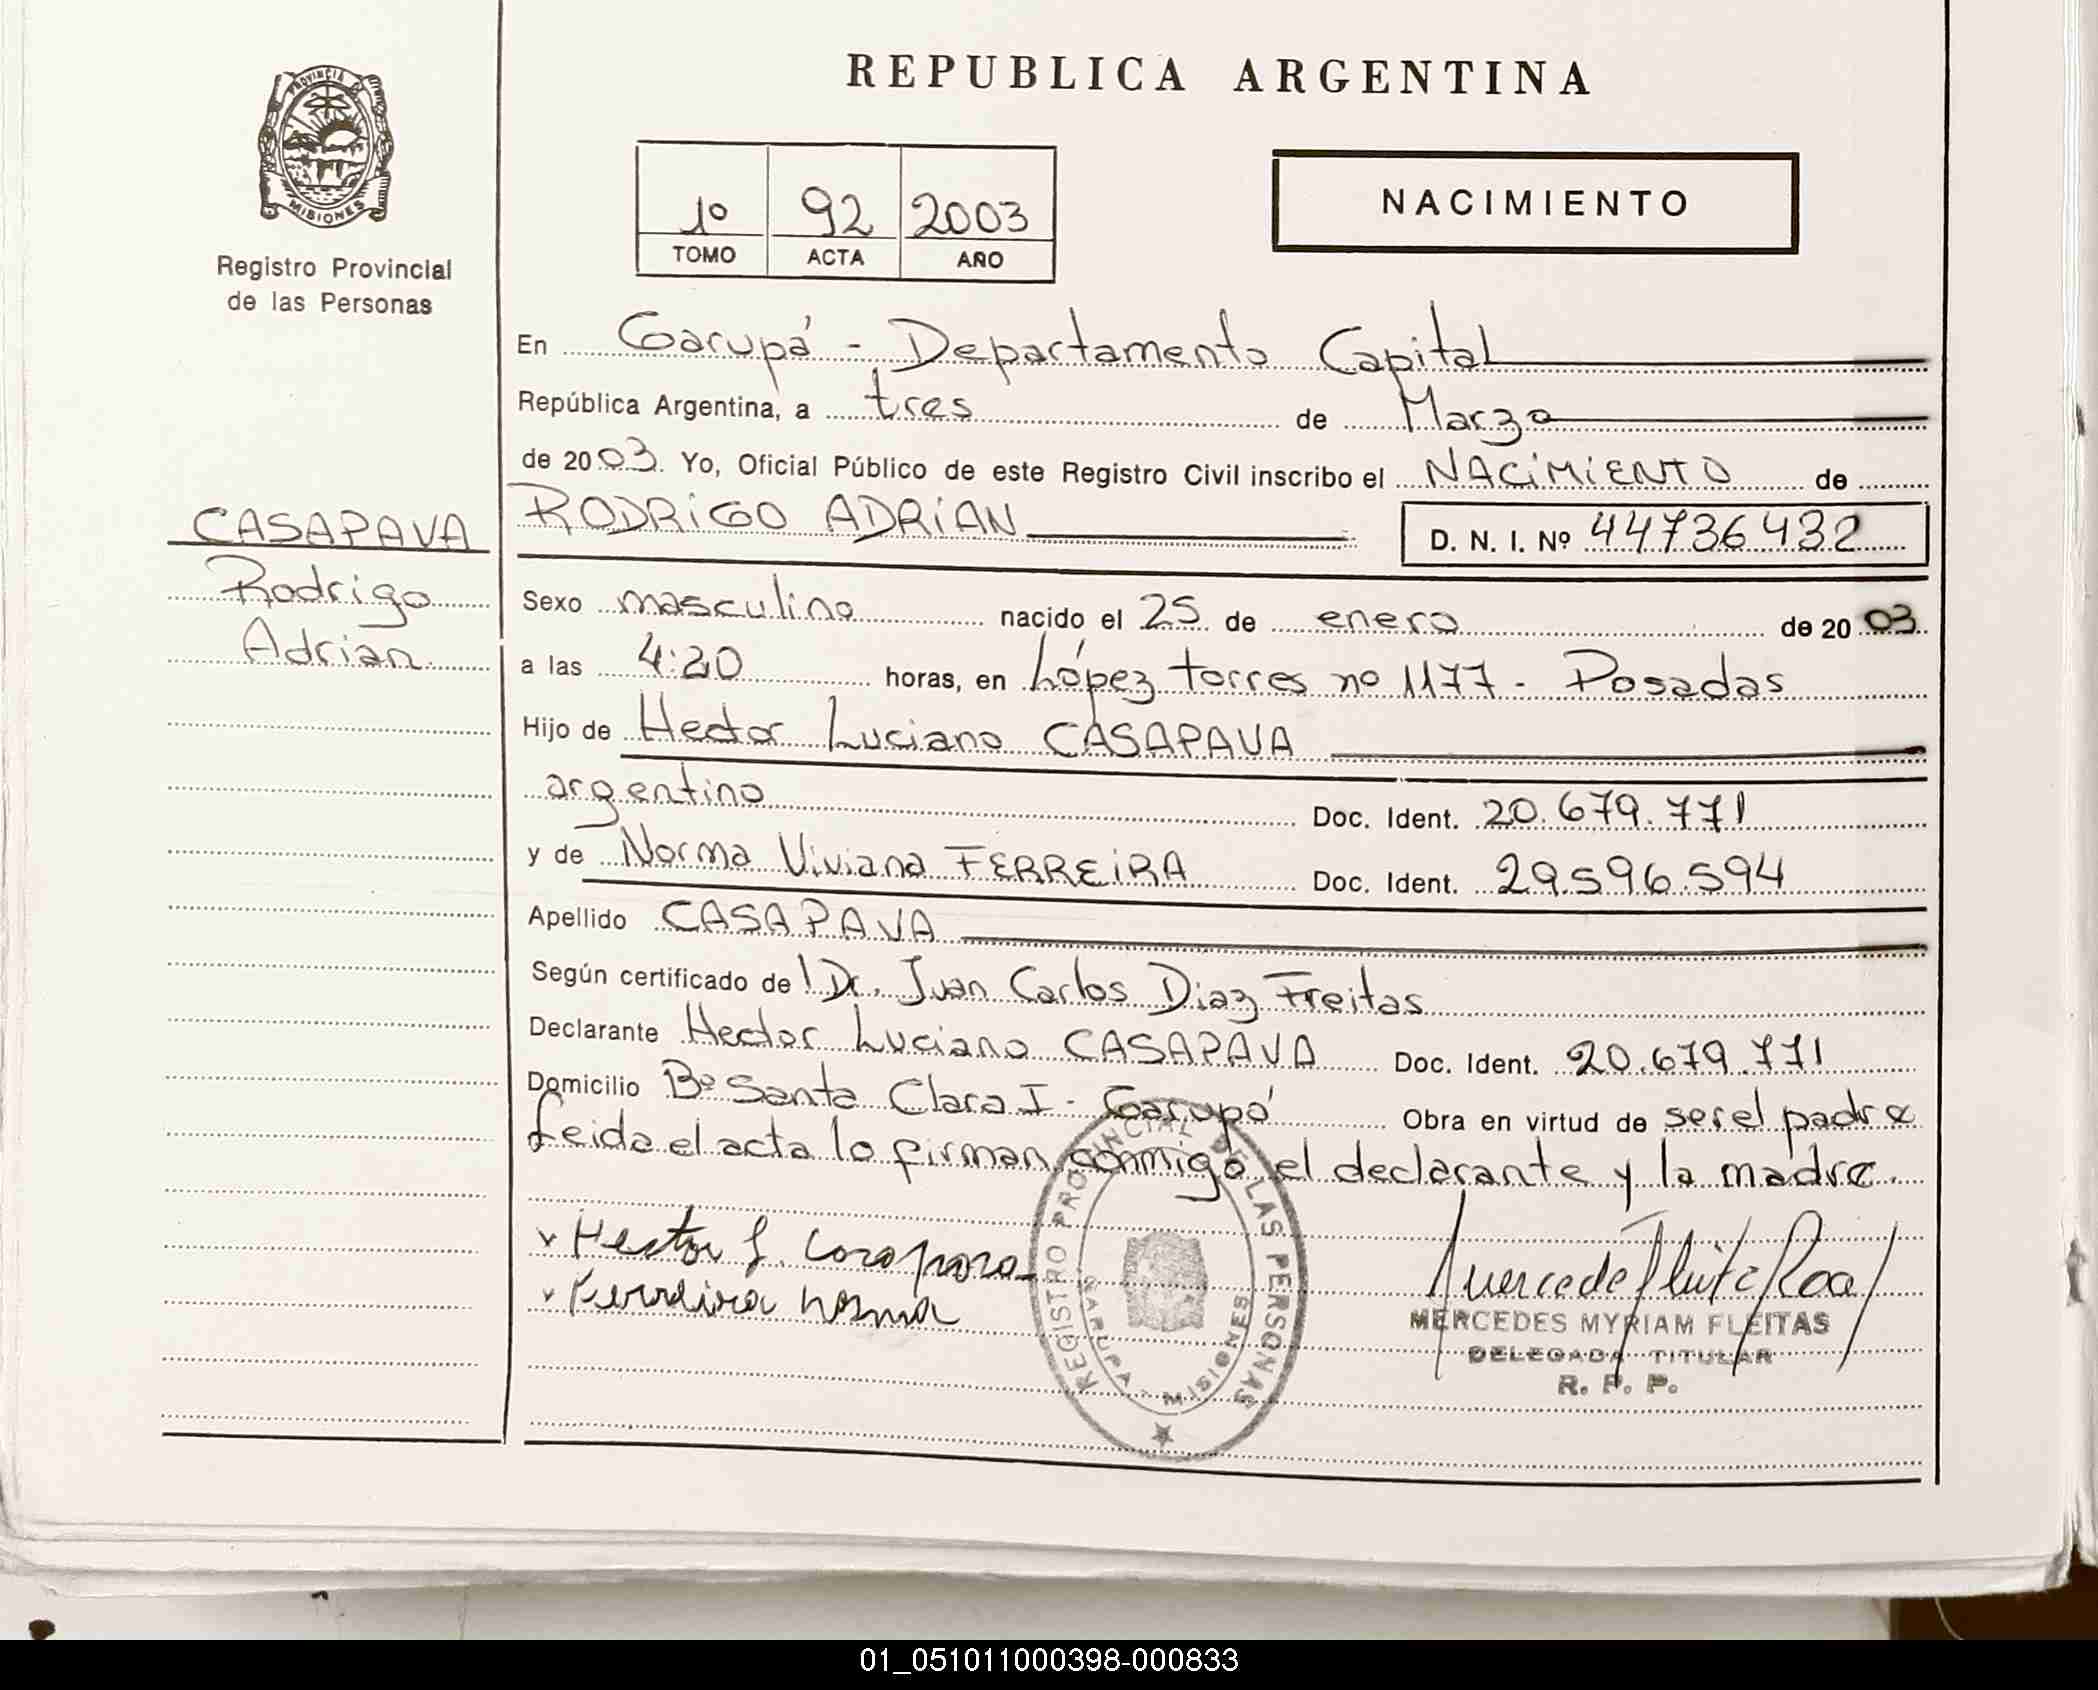 REPUBLICA ARGENTINA
PROVINCIA DE MISIONES
Registro Provincial
de las Personas
1º 92 2003
TOMO ACTA AÑO
NACIMIENTO
En Garupá - Departamento Capital
República Argentina, a tres de Marzo
de 2003. Yo, Oficial Público de este Registro Civil inscribo el NACIMIENTO de
RODRIGO ADRIAN D. N. I. Nº 44736432
CASAPAVA
Rodrigo
Adrian
Sexo masculino nacido el 25 de enero de 2003
a las 4:20 horas, en López torres nº 1177 - Posadas
Hijo de Hector Luciano CASAPAVA
argentino Doc. Ident. 20.679.771
y de Norma Viviana FERREIRA Doc. Ident. 29.596.594
Apellido CASAPAVA
Según certificado de l Dr. Juan Carlos Diaz Freitas
Declarante Hector Luciano CASAPAVA Doc. Ident. 20.679.771
Domicilio Bº Santa Clara I - Garupá Obra en virtud de ser el padre
Leida el acta lo firman conmigo el declarante y la madre.
x Hector L. Casapava
x Ferreira norma
REGISTRO PROVINCIAL DE LAS PERSONAS
GARUPA - MISIONES
MERCEDES MYRIAM FLEITAS
DELEGADA TITULAR
R. P. P.
01_051011000398-000833